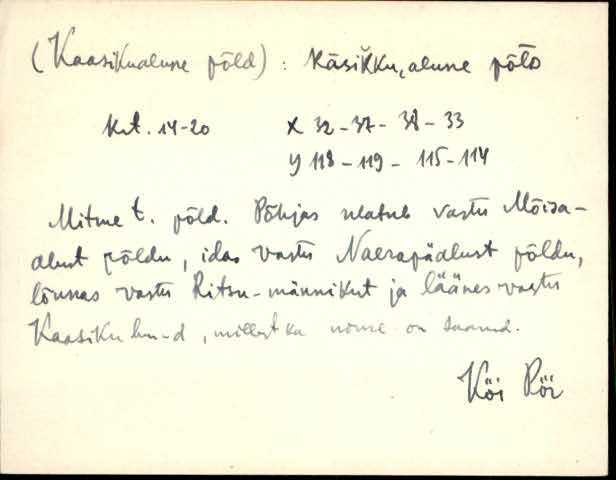 (Kaasikualune põld): käsikku,alune põlD
Krt. 14-20 X 32-37-38-33
Y 118-119-115-114
Mitme t. põld. Põhjas ulatub vastu Mõisa-
alust põldu, idas vastu Naerapäalust põldu,
lõunas vastu Ritsu-männikut ja läänes vastu
Kaasiku hm-d, millest ka nime on saanud.
Köi Pöi